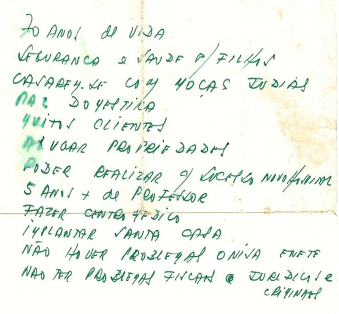 70 ANOS de VIDA
SEGURANCA e SAUDE P/ FILHOS
CASAREM-SE COM MOÇAS JUDIAS
PAZ DOMESTICA
MUITOS CLIENTES
ALUGAR PROPRIEDADES
PODER REALIZAR C/ SUCESSO NOVO
5 ANOS + de PROFESSOR
FAZER CENTRO MEDICO
IMPLANTAR SANTA CASA
NÃO HOVER PROBLEMAS
NAO TER PROBLEMAS FISCAES e JURIDICOS e
CRIMINAES